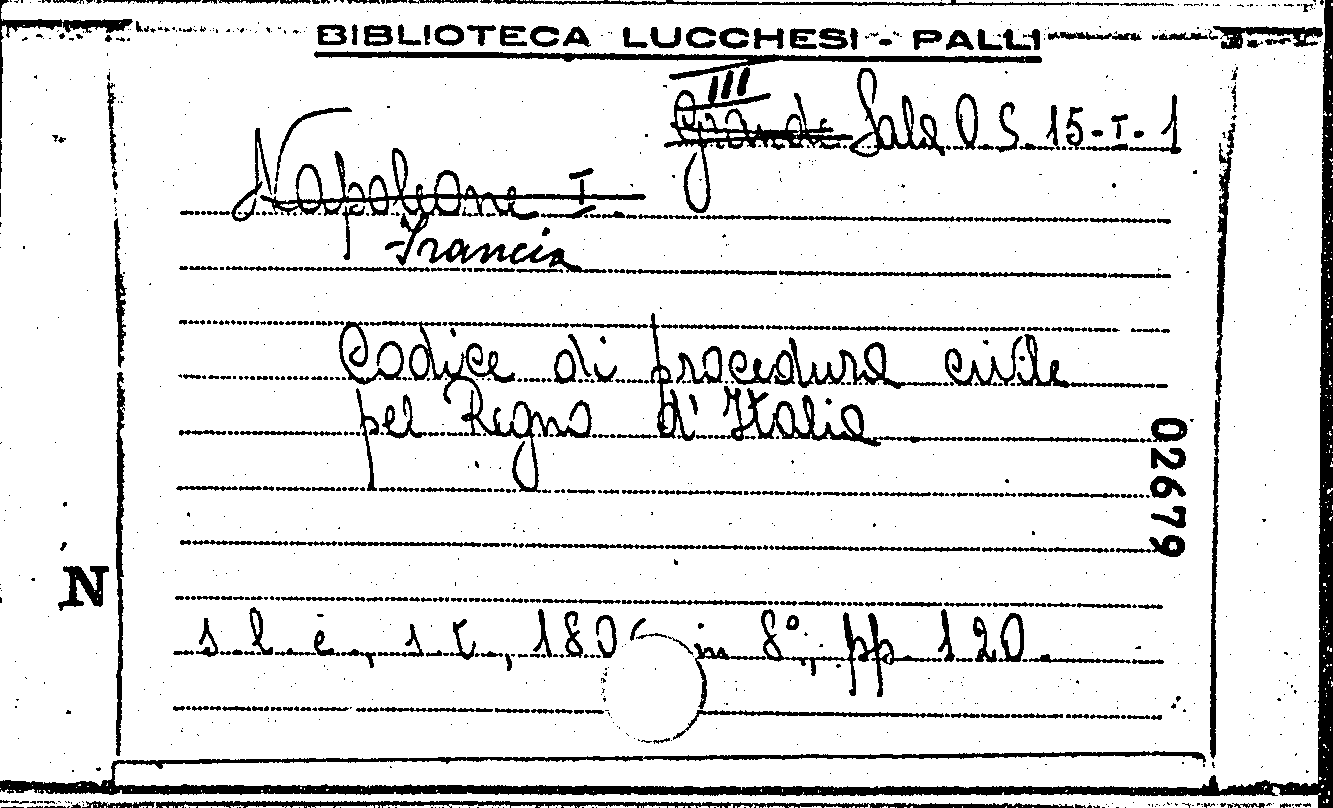 BIBLIOTECA LUCCHESI - PALLI
III
Grande Sala O. S. 15-I-1
Napoleone I.
Francia
Codice di procedura civile
pel Regno d'Italia
02679
N
s. l. e., s. t., 180 in 8°, pp. 120.